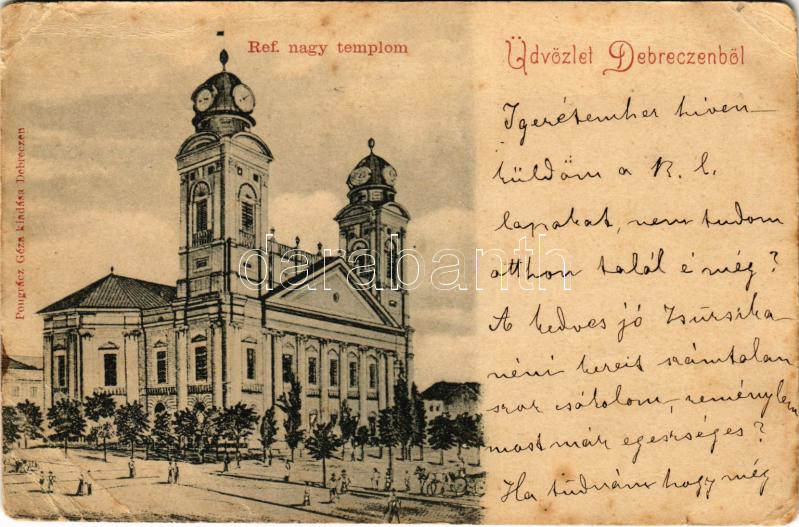 Ref. nagy templom
Üdvözlet Debreczenből
Pongrácz Géza kiadása Debreczen
Igeretemhez hiven
küldöm a K. l.
lapokat, nem tudom
otthon talál é még?
A kedves jó Zsuzsika
néni kezeit számtalan
szor csókolom, reménylem
most már egeszséges?
Ha tudnám hogy még
darabanth